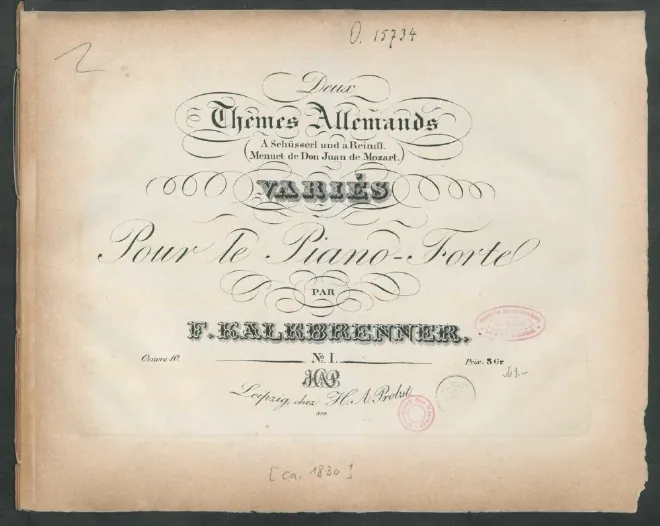 O. 15734
2
Deux
Thêmes Allemands
A Schüsserl und a Reindl.
Menuet de Don Juan de Mozart.
VARIÉS
Pour le Piano-Forte
PAR
F. KALKBRENNER.
Oeuvre 10.
No. I.
Prix. 8 Gr
HAP
Leipzig, chez H. A. Probst
210
[ca. 1830]